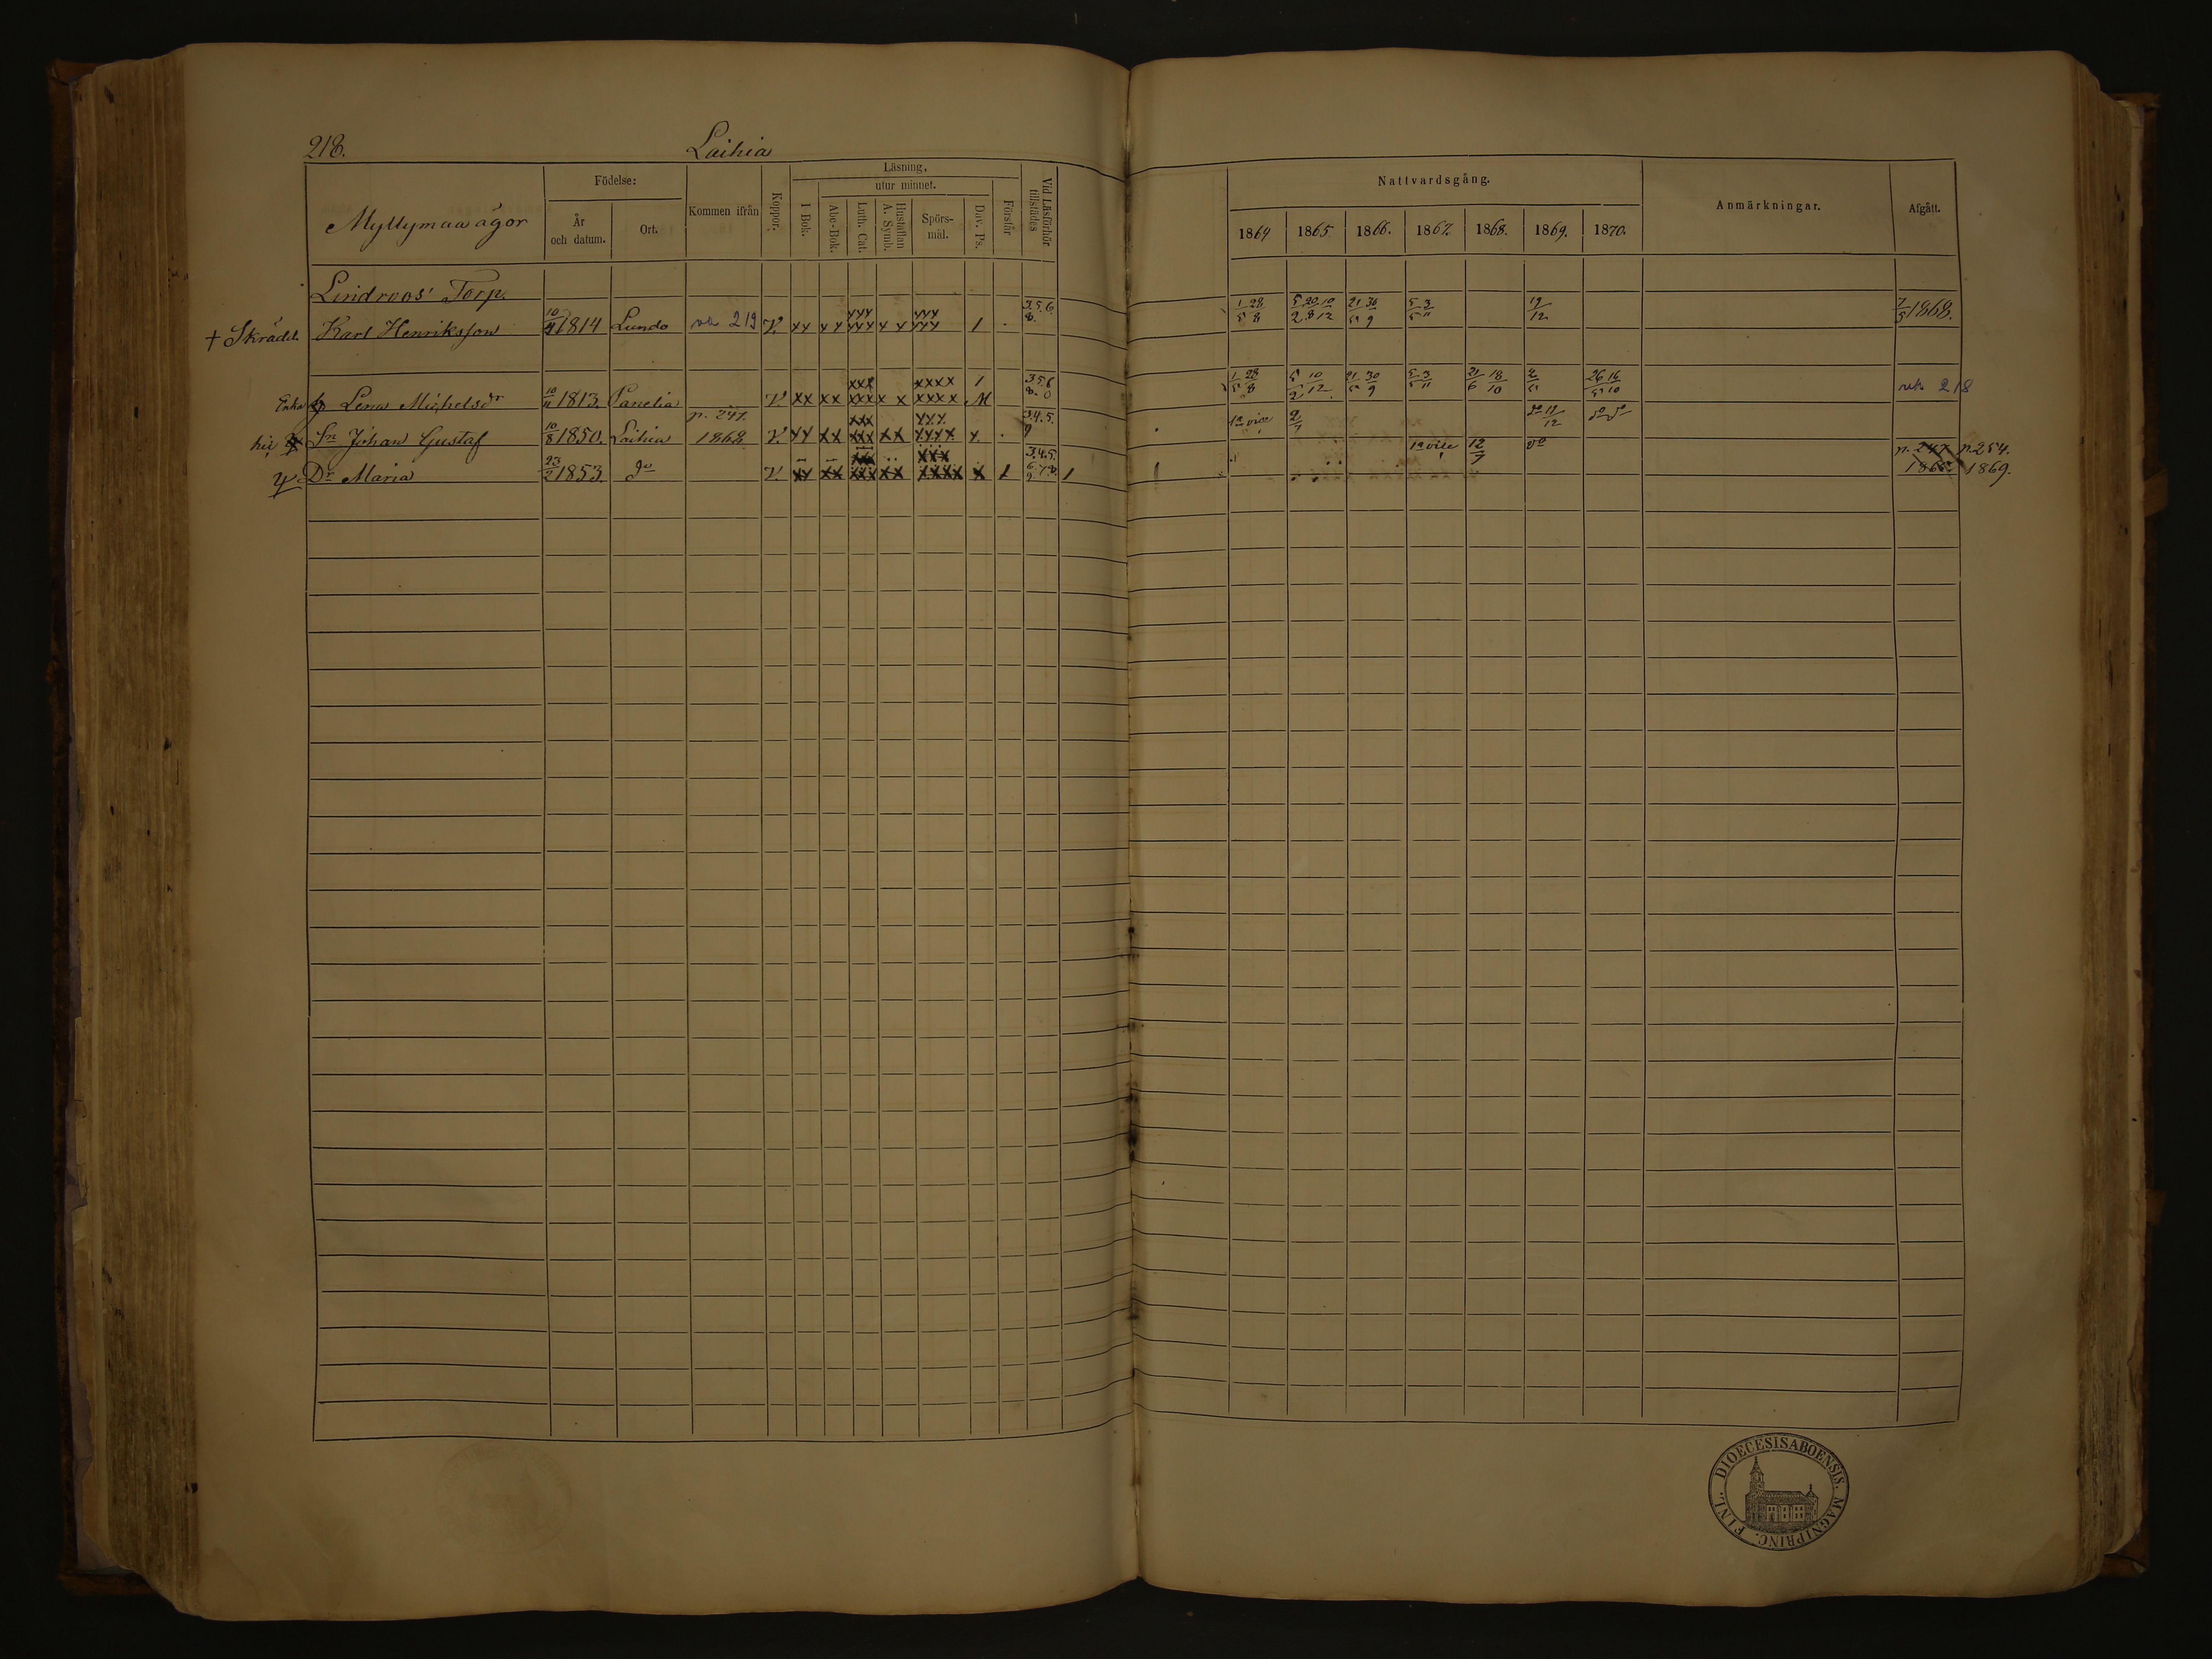 218. Laihia
Myllymaa ägor
Födelse:
År och datum.
Ort.
Kommen ifrån
Koppor.
Läsning,
utur minnet.
I Bok.
Abc-Bok.
Luth. Cat.
Hustaflan A. Symb.
Spörs-mål.
Dav. Ps.
Förstår
Vid Läsförhör tillstädes
Nattvardsgång.
1864 1865. 1866. 1867. 1868. 1869. 1870.
Anmärkningar.
Afgått.
Lindroos' Torp.
+ Skrädd. Karl Henriksson 1814 Lundo 219 V. xx xx xxx xxx xx xxx xxx 1 3.5.6. 8. 1/5 28/8 21/5 30/9 5/5 3/11 19/12 7/5 1868.
Enka Lena Michelsdr 10/11 1813. Panelia V. xx xx xxx xxx x x xxxx xxxx 1 3.5.6 8. 0 1/5 28/8 21/5 30/9 5/5 3/11 21/6 18/10 26/5 16/10 218
Sn Johan Gustaf 10/8 1850. Laihia p. 247. 1868 V. xx xx xxx xxx xx xxx xxxx x 3.4.5. 9 1a vice 2/7 do 19/12 do do
Dr Maria 23/2 1853. do V. xx xx xxx xx xxx xxxx x 1 3.4.5. 6.7.8. 9 1 1a vice 12/7 do p. 247 1868 p. 254. 1869.
DIOECESIS ABOENSIS. MAGNI PRINC. FINL.